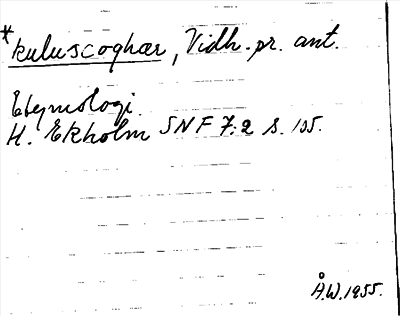 *kuluscoghær, Vidh. pr. ant.
Etymologi.
H. Ekholm SNF 7:2 s. 105.
Å.W. 1955.